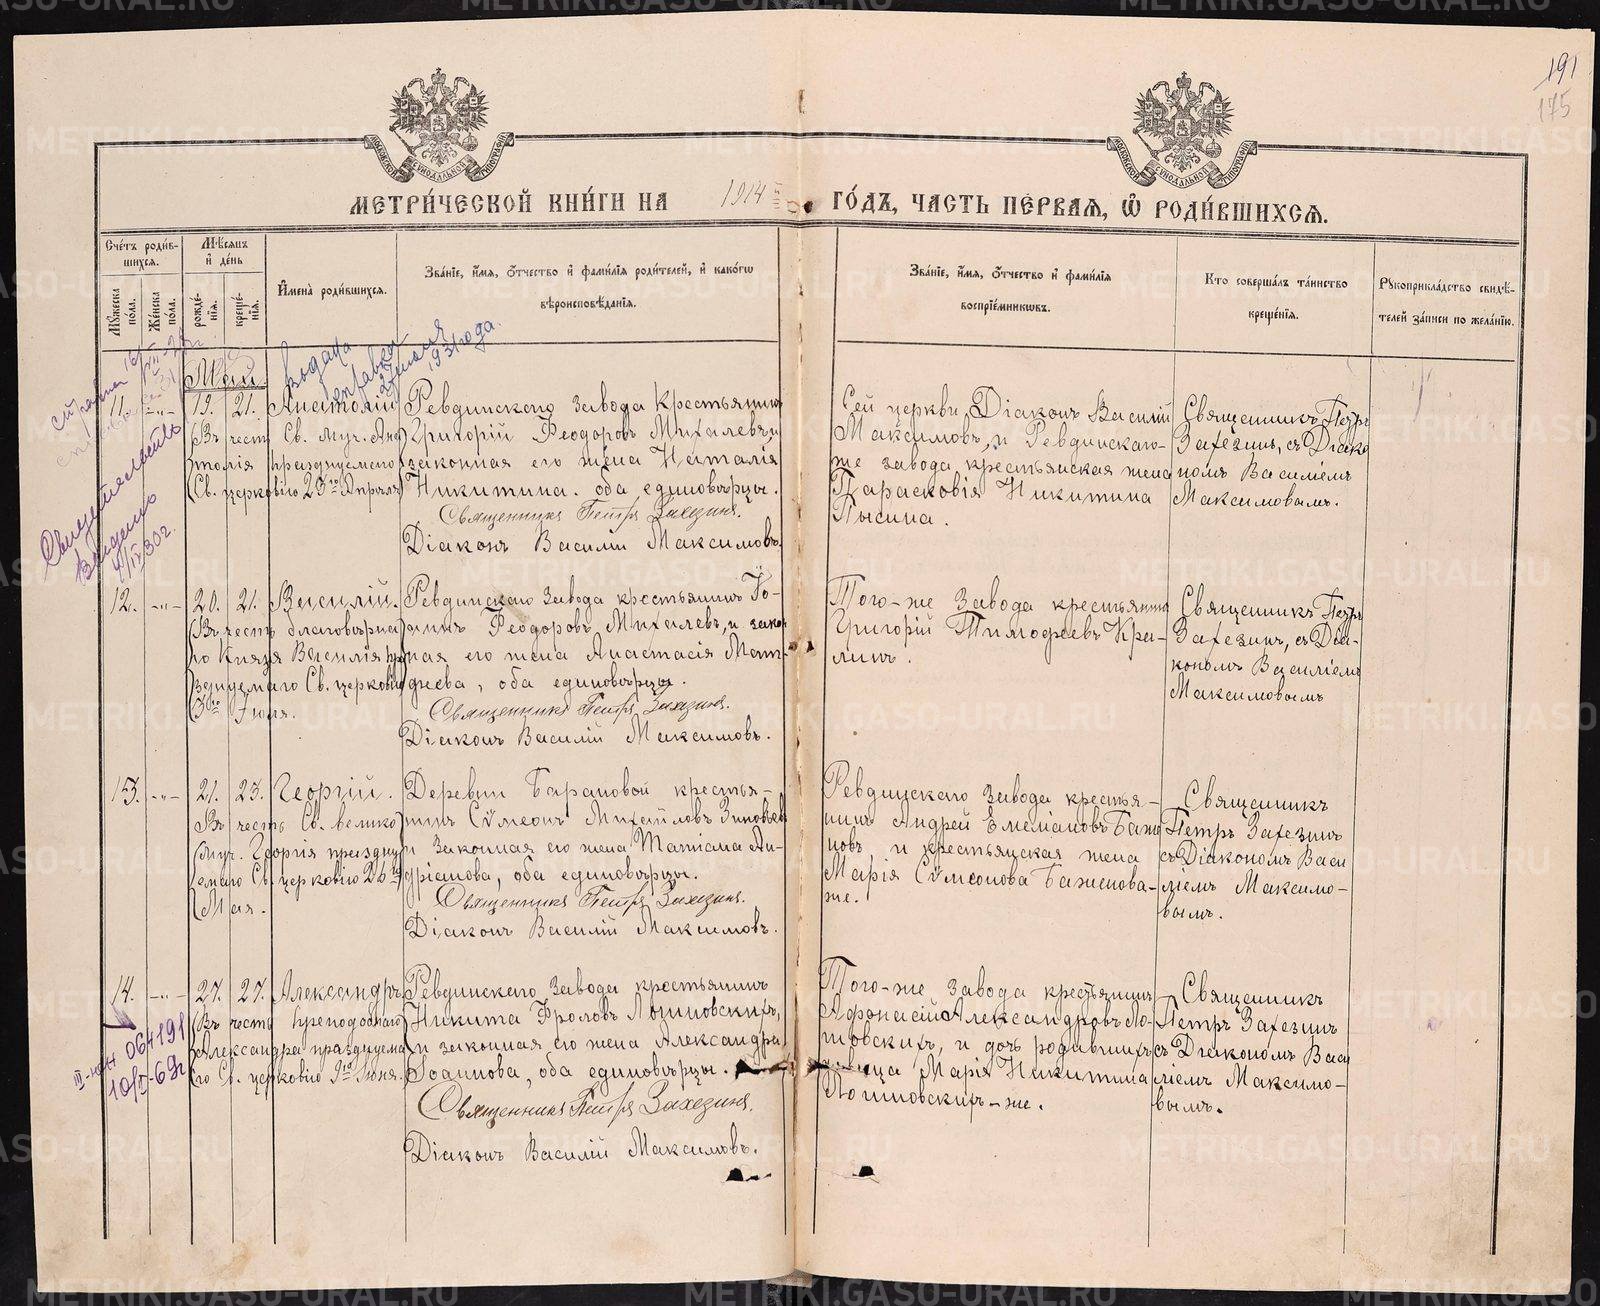 191
175
МЕТРИ́ЧЕСКОЙ КНИ́ГИ НА 1914 ГО́ДЪ, ЧАСТЬ ПЕ́РВАЯ, Ѡ РОДИ́ВШИХСЯ.
Счетъ роди́в-
шихся.
Му́жеска по́ла.
Же́нска по́ла.
Мѣсяцъ и де́нь
рожде́-
нія.
креще́-
нія.
Имена̀ роди́вшихся.
Зва́ніе, и́мя, о́тчество и фами́лія роди́телей, и како́гѡ
вѣроисповѣ́данія.
Зва́ніе, и́мя, о́тчество и фами́лія
воспріе́мниковъ.
Кто соверша́лъ та́инство
креще́нія.
Рукоприкла́дство свидѣ́-
телей за́писи по жела́нію.
выдана
справка
1931 года.
Свидѣтельство
выдано
4/IX 30 г.
Май.
11. -"- 19. 21. Анатолій
(Въ честь Св. муч. Ана
толія празднуемаго
Св. церковію 23го Апрѣля
Ревдинскаго завода крестьянинъ
Григорій Феодоровъ Михалевъ, и
законная его жена Наталія
Никитина. оба единовѣрцы.
Священникъ Петръ Захезинъ.
Діаконъ Василій Максимовъ.
Сей церкви, Діаконъ Василій
Максимовъ, и Ревдинскаго-
же завода крестьянская жена
Парасковія Никитина
Пысина.
Священникъ Петръ
Захезинъ, съ Діако
номъ Василіемъ
Максимовымъ.
12. -"- 20. 21. Василій.
(Въ честь благовѣрна
го Князя Василія пра
зднуемаго Св. церковію
3го Іюля.
Ревдинскаго завода крестьянинъ
Феодоровъ Михалевъ, и закон
ная его жена Анастасія Мат-
ѳіева, оба единовѣрцы.
Священникъ Петръ Захезинъ.
Діаконъ Василій Максимовъ.
Того-же завода крестьянинъ
Григорій Тимофеевъ Кра-
линъ.
Священникъ Петръ
Захезинъ, съ Діа-
кономъ Василіемъ
Максимовымъ
13. -"- 21. 23. Георгій.
Въ честь Св. велико
муч. Георгія праздну
емаго Св. церковію 26го
Мая.
Деревни Барановой крестья-
нинъ Сѵмеонъ Михайловъ Зиновьевъ
и законная его жена Татіана Ан-
дріанова, оба единовѣрцы.
Священникъ Петръ Захезинъ.
Діаконъ Василій Максимовъ.
Ревдинскаго завода крестья-
нинъ Андрей Емеліановъ Баже
новъ, и крестьянская жена
Марія Сѵмеонова Баженова-
же.
Священникъ
Петръ Захезинъ
съ Діакономъ Васи
ліемъ Максимо-
вымъ.
14. -"- 27. 27. Александръ
(Въ честь преподобнаго
Александра празднуема
го Св. церковію 9го Іюня.
064191
10/I-69г
Ревдинскаго завода крестьянинъ
Никита Фроловъ Лошновскихъ,
и законная его жена Александра
Іоаннова, оба единовѣрцы.
Священникъ Петръ Захезинъ.
Діаконъ Василій Максимовъ.
Того-же завода крестьянинъ
Афонасій Александровъ Ло-
шновскихъ, и дочь родившихъ
дѣвица Марія Никитина
Лошновскихъ-же.
Священникъ
Петръ Захезинъ
съ Діакономъ Васи
ліемъ Максимо-
вымъ.
METRIKI.GASO-URAL.RU